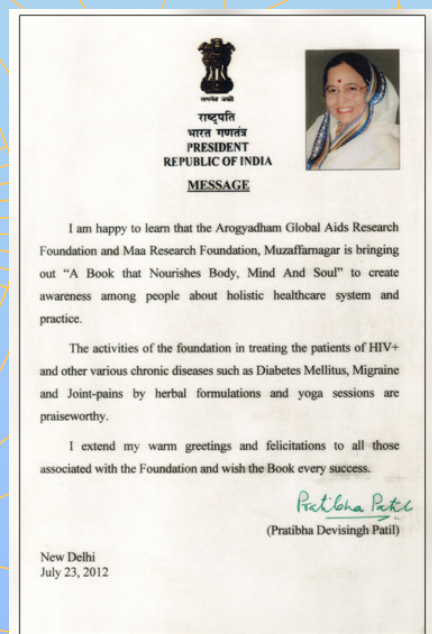 सत्यमेव जयते
राष्ट्रपति
भारत गणतंत्र
PRESIDENT
REPUBLIC OF INDIA
MESSAGE
I am happy to learn that the Arogyadham Global Aids Research
Foundation and Maa Research Foundation, Muzaffarnagar is bringing
out “A Book that Nourishes Body, Mind And Soul” to create
awareness among people about holistic healthcare system and
practice.
The activities of the foundation in treating the patients of HIV+
and other various chronic diseases such as Diabetes Mellitus, Migraine
and Joint-pains by herbal formulations and yoga sessions are
praiseworthy.
I extend my warm greetings and felicitations to all those
associated with the Foundation and wish the Book every success.
Pratibha Patil
(Pratibha Devisingh Patil)
New Delhi
July 23, 2012